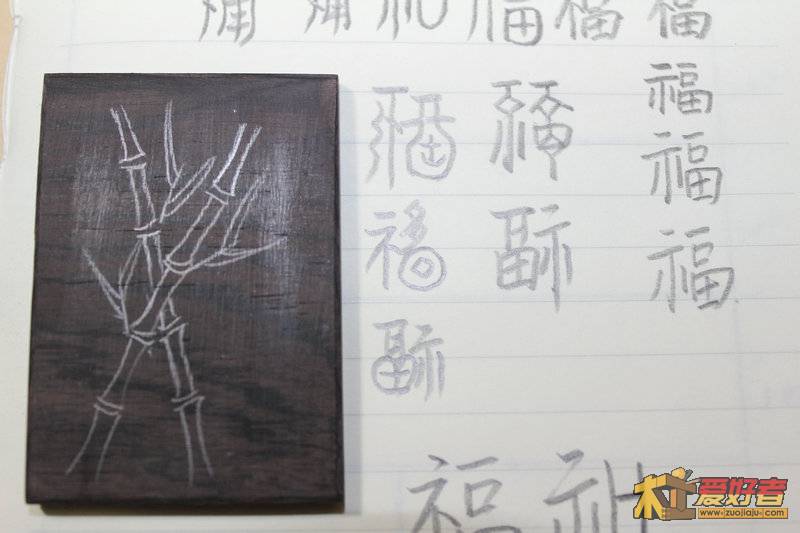 福 福 福
福 福 福
福
福 福 福
福
福
木工爱好者
www.zuojiaju.com